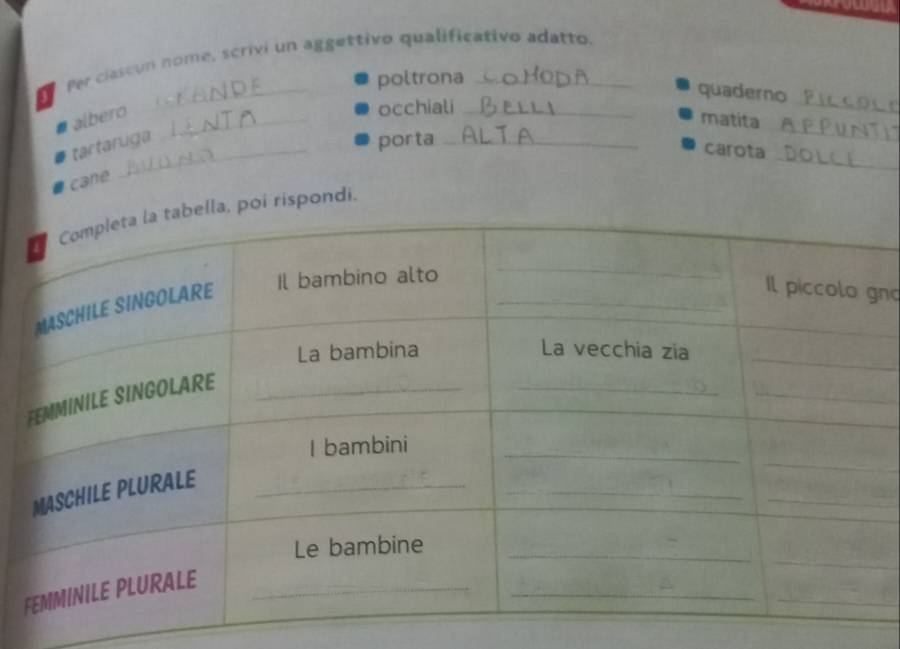 Per ciascun nome, scrivi un aggettivo qualificativo adatto.
albero GRANDE
tartaruga LENTA
cane BUONO
poltrona COMODA
occhiali BELLI
porta ALTA
quaderno PICCOL
matita APPUNTIT
carota DOLCE
4 Completa la tabella, poi rispondi.
MASCHILE SINGOLARE Il bambino alto Il piccolo gno
FEMMINILE SINGOLARE La bambina La vecchia zia
MASCHILE PLURALE I bambini
FEMMINILE PLURALE Le bambine